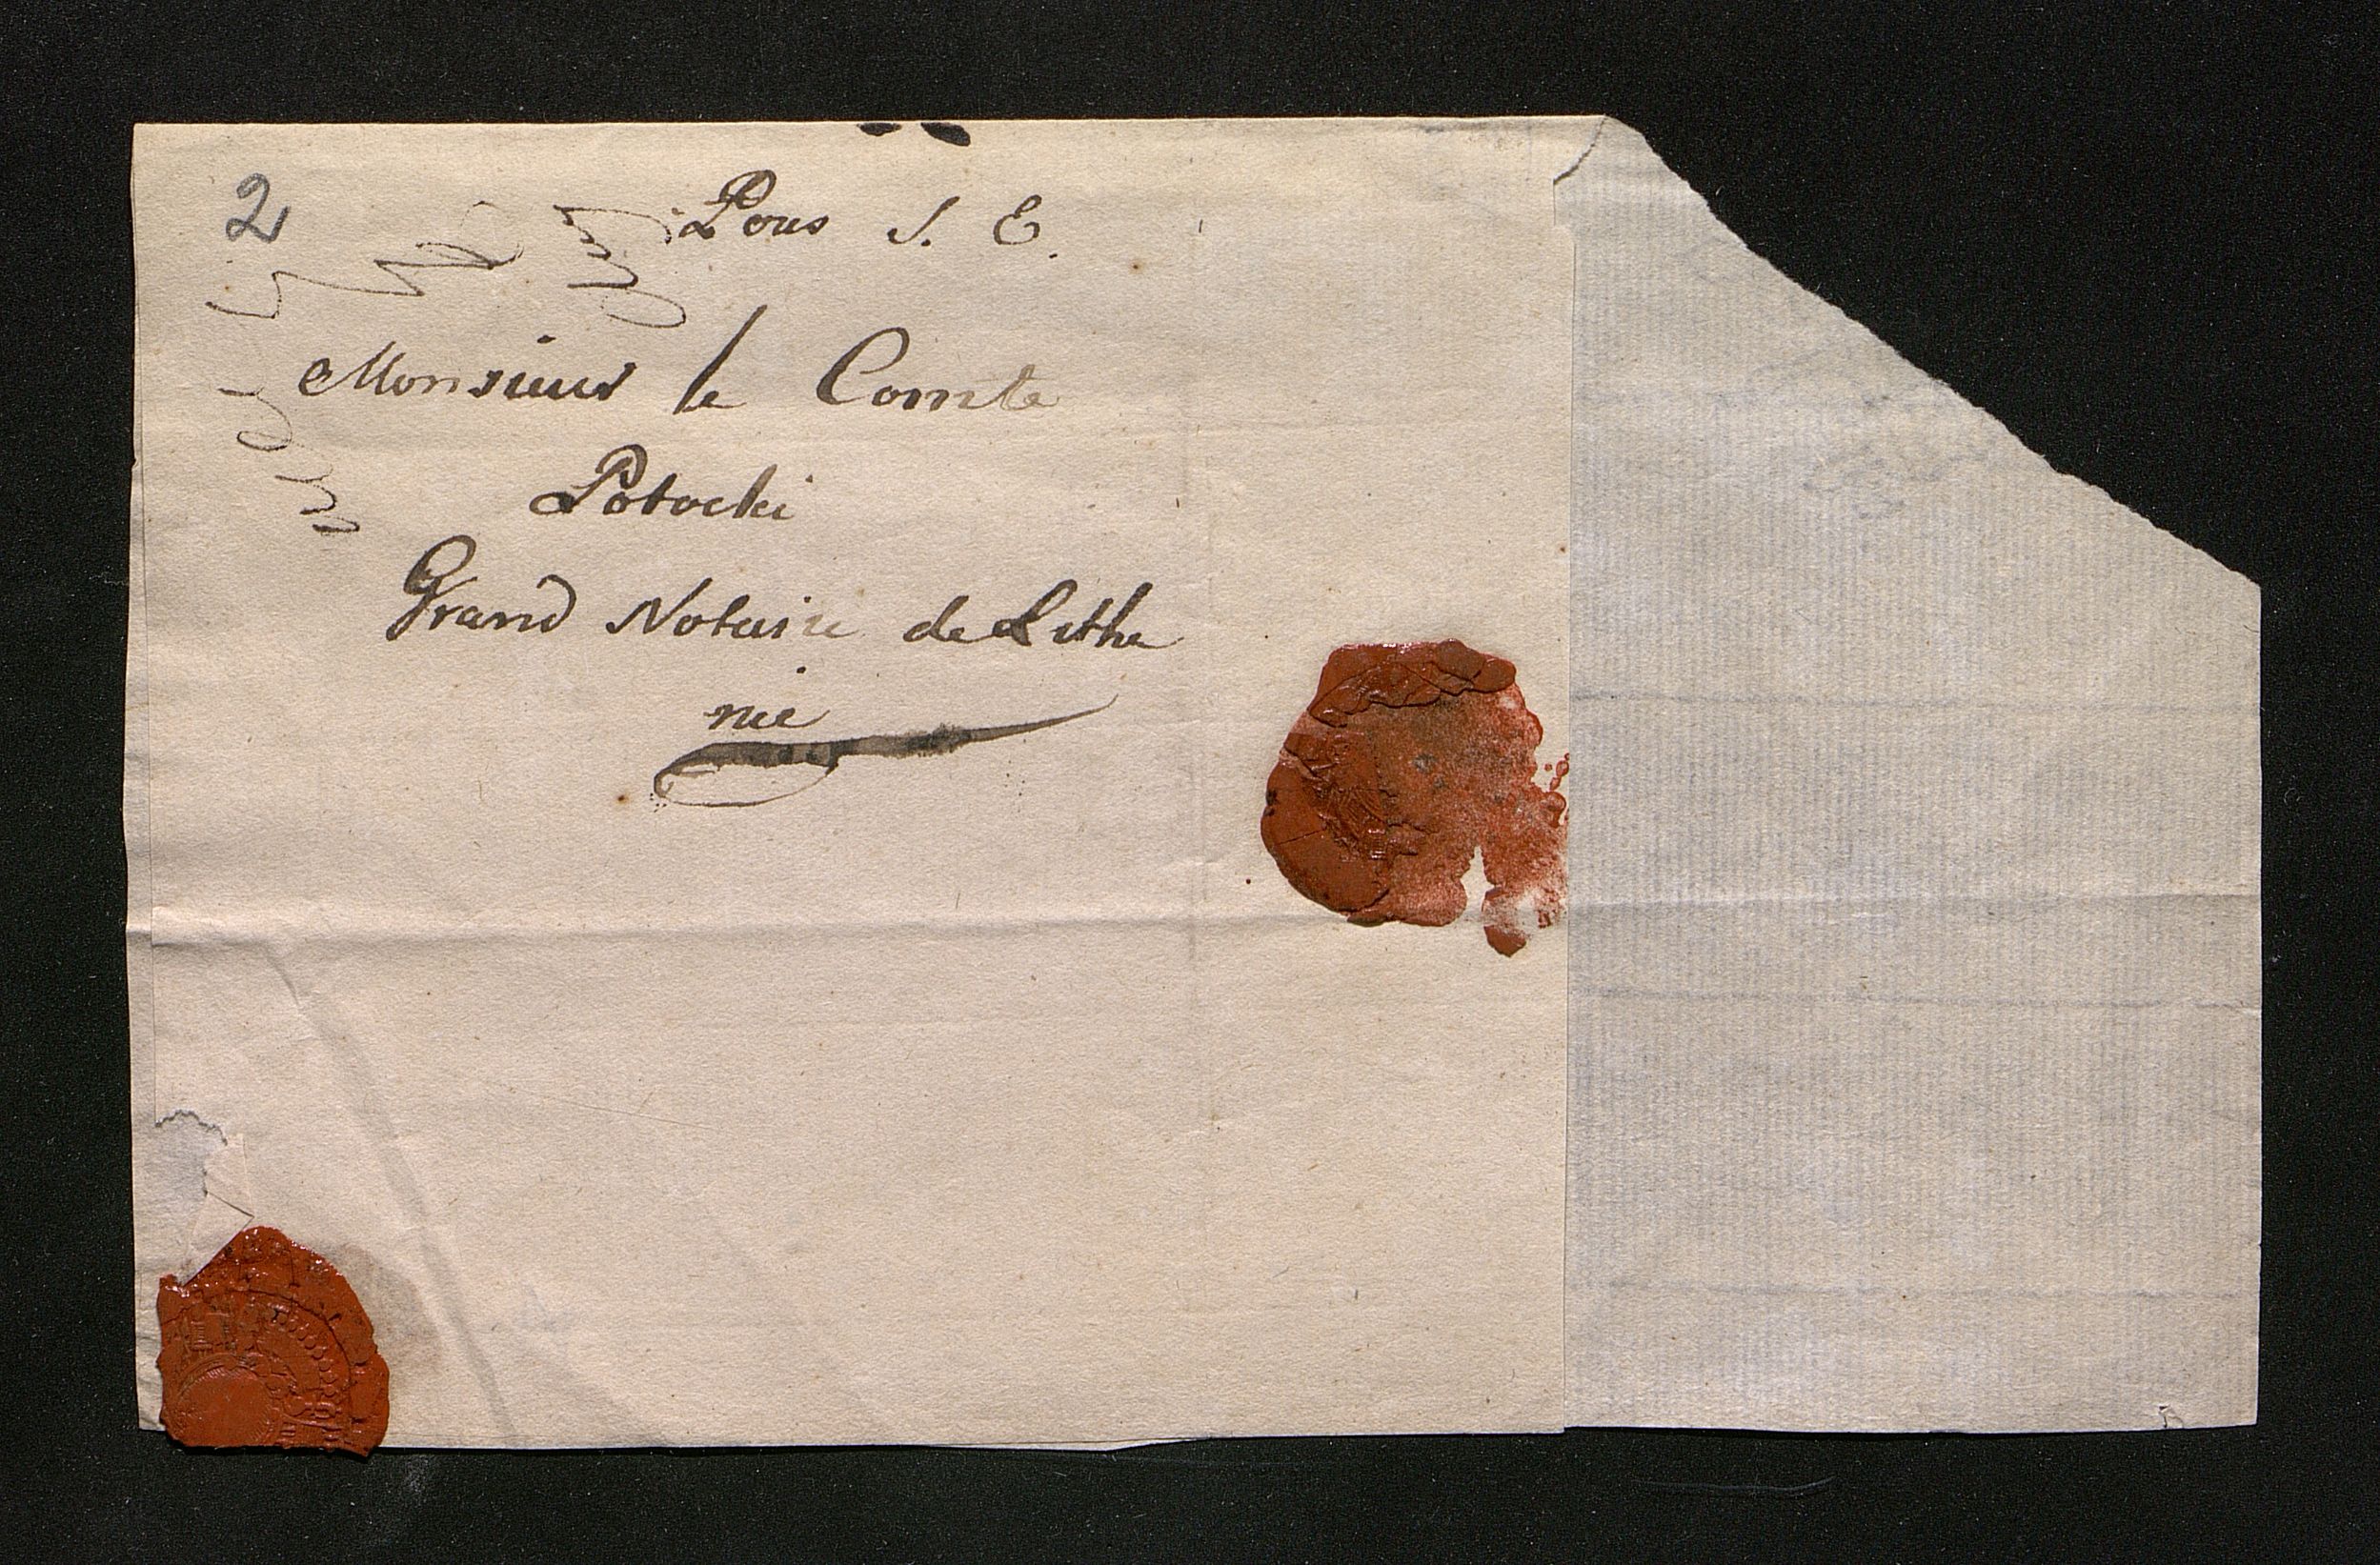 2
Pour S. E.
Monsieur le Comte
Potocki
Grand Notaire de Lithu
nie